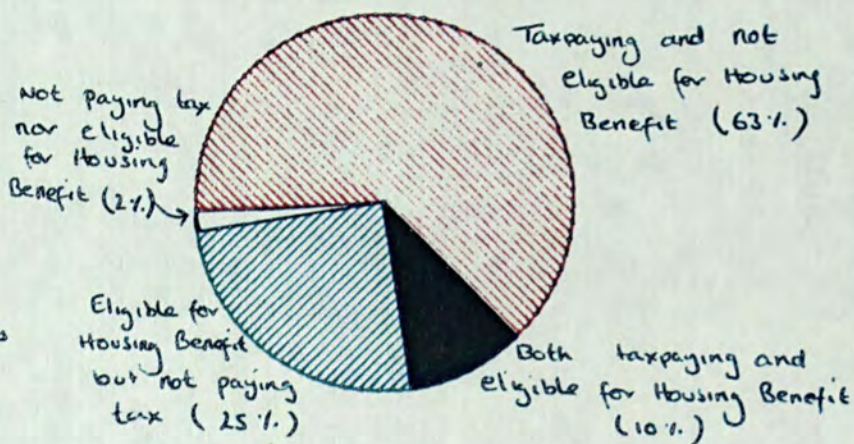 Taxpaying and not
eligible for Housing
Benefit (63%)
Not paying tax
nor eligible
for Housing
Benefit (2%)
Eligible for
Housing Benefit
but not paying
tax (25%)
Both taxpaying and
eligible for Housing Benefit
(10%)